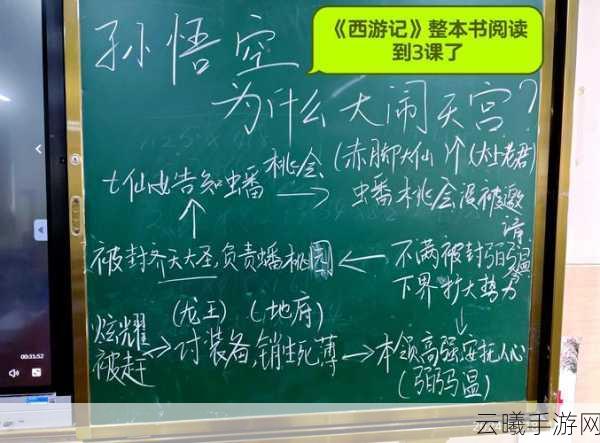 《西游记》整本书阅读
到3课了
孙悟空
为什么大闹天宫?
七仙女告知蟠桃会 → (赤脚大仙) 个 (太上老君)
蟠桃会没被邀请
被封齐天大圣,负责蟠桃园 ← 不满被封弼马温
下界扩大势力
(龙王) (地府)
炫耀 被赶 → 讨装备,销生死薄 → 本领高强安抚人心
(弼马温)
00:31:52
云曦手游网